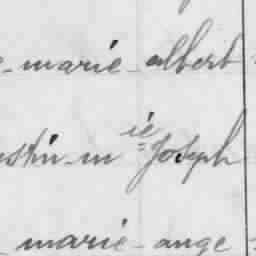 marie albert
ustin-m ie Joseph
marie-ange